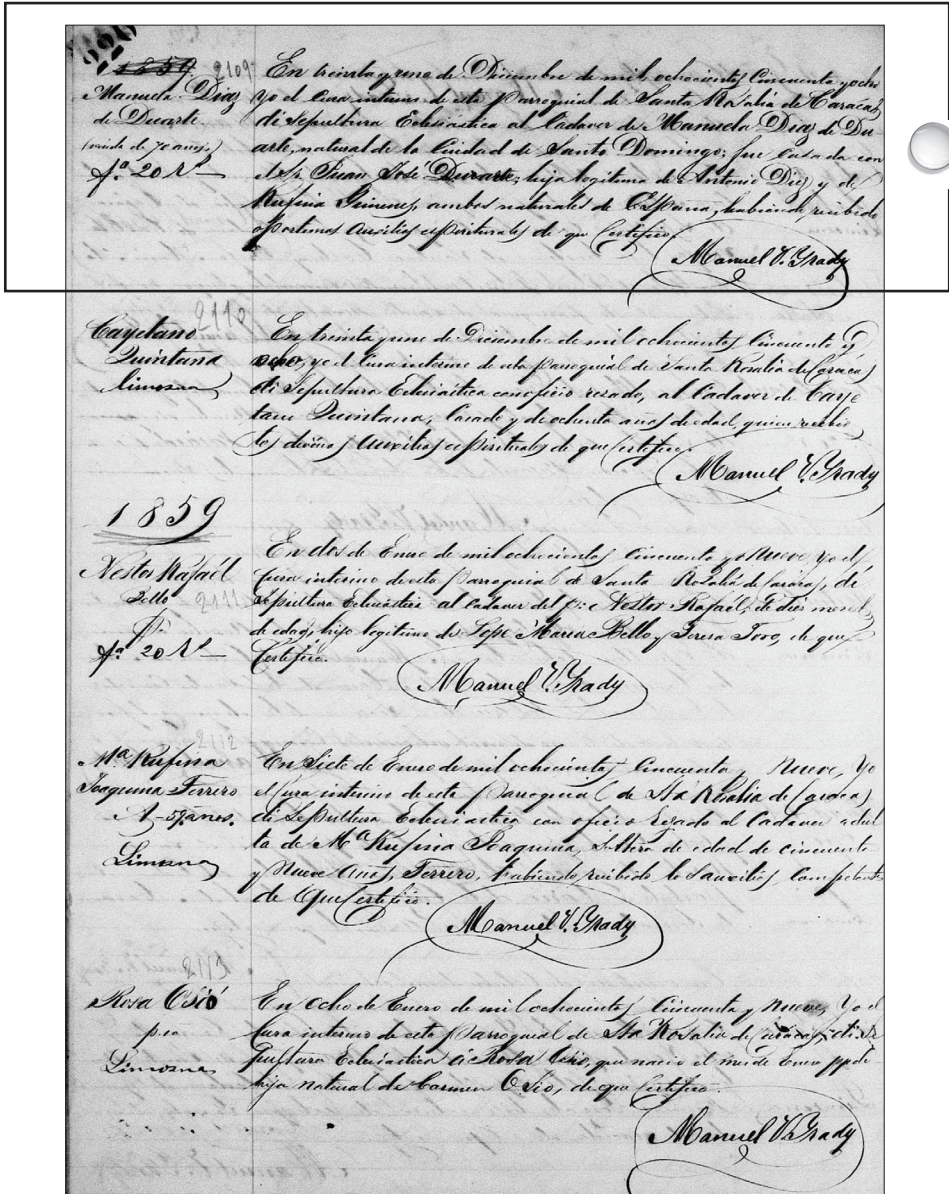 1859. 2109
Manuela Diaz
de Duarte
(viuda de 70 años)
fa. 20 rs
En treinta y uno de Diciembre de mil ochocientos Cincuenta y ocho
yo el Cura interino de esta Parroquial de Santa Rosalia de Caracas,
di Sepultura Eclesiástica al Cadaver de Manuela Diaz de Du
arte, natural de la Ciudad de Santo Domingo; fue casada con
el Sr. Juan José Duarte; hija legitima de Antonio Diez y de
Rufina Gimenes, ambos naturales de España, habiendo recibido
oportunos auxilios espirituales de que Certifico.
Manuel V. Grady
2110
Cayetano
Quintana
limosna
En treinta y uno de Diciembre de mil ochocientos Cincuenta y
ocho, yo el Cura interino de esta Parroquial de Santa Rosalia de Caracas
di Sepultura Eclesiástica con oficio rezado, al Cadaver de Caye
tano Quintana, Casado y de ochenta años de edad, quien recibio
los divinos auxilios espirituales de que Certifico.
Manuel V. Grady
1859
Nestor Rafaél
Bello 2111
fa. 20 rs
En dos de Enero de mil ochocientos Cincuenta y Nueve, yo el
Cura interino de esta Parroquial de Santa Rosalia de Caracas, di
Sepultura Eclesiástica al Cadaver del Nestor Rafaél, de diez meses
de edad, hijo legitimo de José Maria Bello y Teresa Toro, de que
Certifico.
Manuel V. Grady
2112
Ma. Rufina
Joaquina Ferrero
A-59 años.
Limosna
En Siete de Enero de mil ochocientos Cincuenta y Nueve, Yo
el Cura interino de esta Parroquial de Sta Rosalia de Caracas
di Sepultura Eclesiastica con oficio Rezado al Cadaver adul
ta de Ma. Rufina Joaquina, Soltera de edad de cincuenta
y Nueve Años, Ferrero, habiendo recibido los auxilios Competentes
de Que Certifico.
Manuel V. Grady
2113
Rosa Osió
Limosna
En ocho de Enero de mil ochocientos Cincuenta y Nueve, Yo el
Cura interino de esta Parroquial de Sta Rosalia de Caracas, di Se
pultura Eclesiastica a Rosa Osio, que nacio el mes de Enero ppdo
hija natural de Carmen Osio, de que Certifico.
Manuel V. Grady